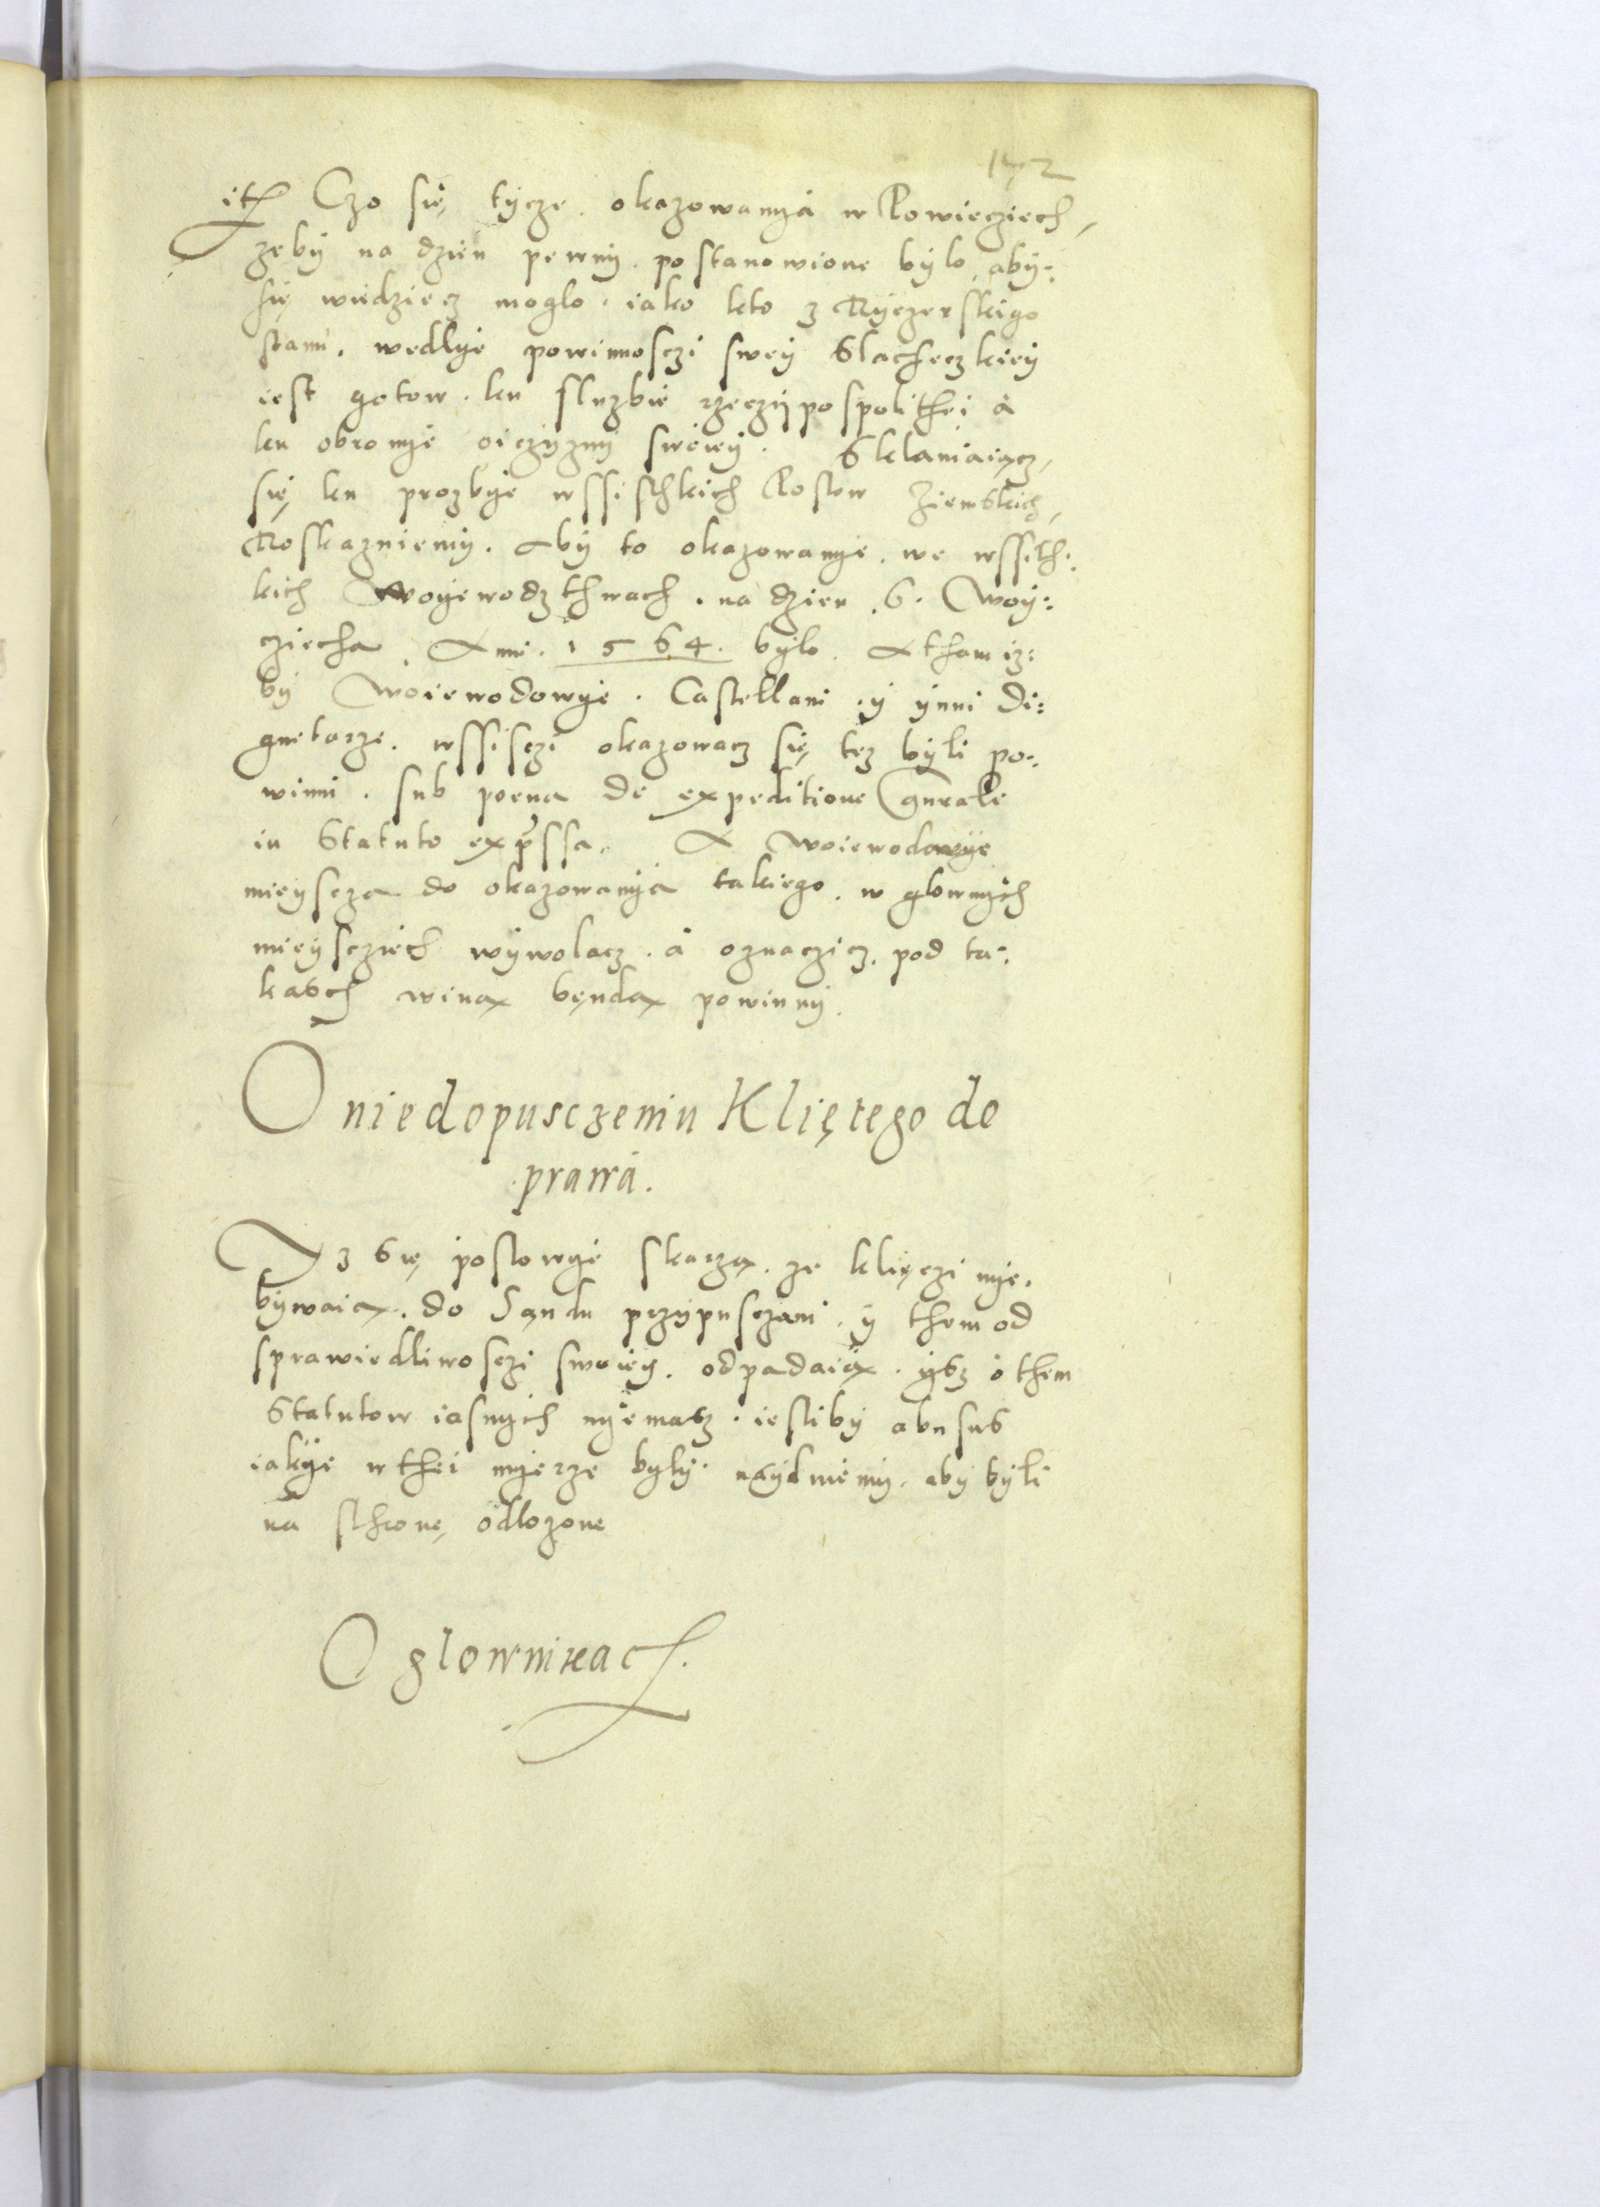 172
itẽ Czo się tycze okazowanya w Powieczech,
zeby na dzien pewny postanowione bylo, aby:
się widziecz moglo. iako kto z Ryczerskigo
stanu. wedlye powinnosczi swey Slacheczkiey
iest gotow. ku sluzbie rzeczypospolithei á
ku obronye oiczyzny swoiey. Sklaniaiącz
się ku prozbye wssisthkich Poslow Ziemskich,
Roskazuiemy. Aby to okazowanye. we wssith:
kich Woyewodzthwach. na dzien .S. Woy:
cziecha. Anni. 1564. bylo. A tham iz:
by Woiewodowye. Castellani. y ynni di:
gnetarze. wssisczi okazowacz się tez byli po:
winni. sub poena de expeditione gnrale
in Statuto expssa. A woiewodowye
mieyscza do okazowanya takiego. w glownych
mieysczech wywolacz. á oznaczicz. pod ta:
kąsch winą bendą powinny.
O niedopusczeniu Klię̨tego do
prawá.
Iz się poslowye skarzą. ze klięczi nye.
bywaią. do Sandu przypusczani. y them od
sprawiedliwosczi swoiey. odpadaią. ysz o them
Statutow iasnych nyemasz. iesliby abusus
iakye w thei myerze byly. naydniemy. aby byli
ná sthronę odlozone
O glownikach.